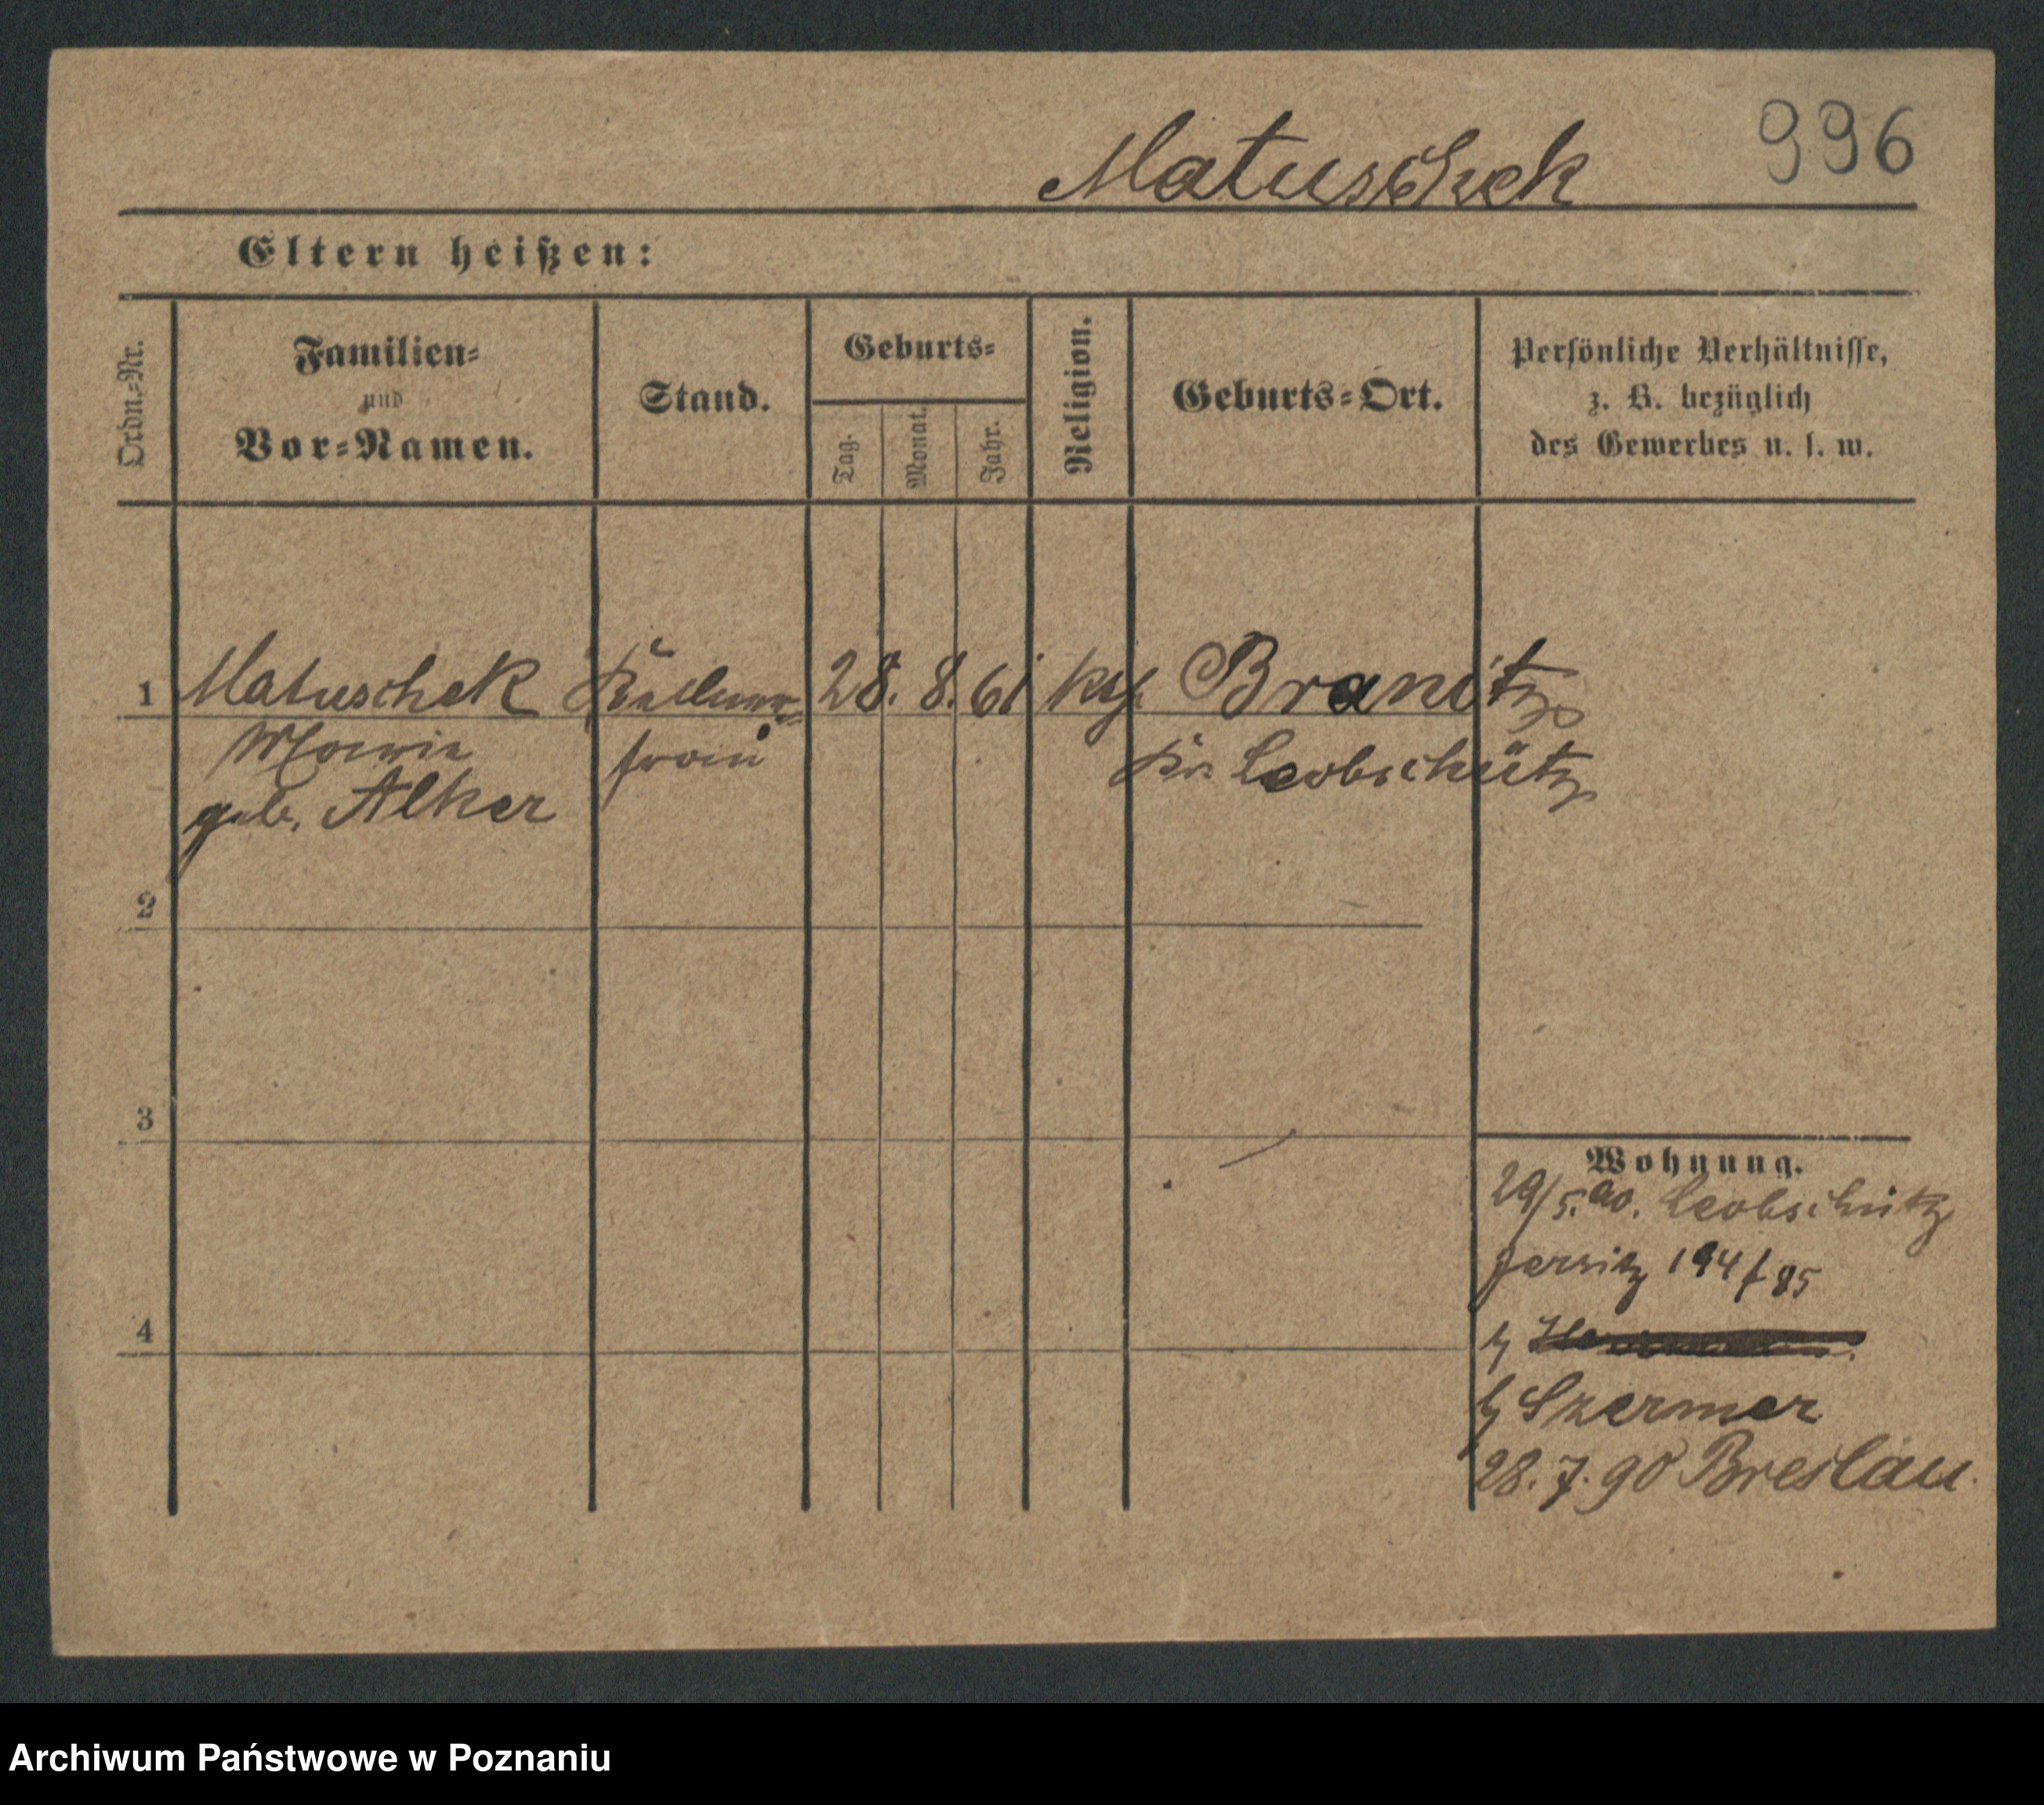 996
Matuschek
Eltern heißen:
Ordn.=Nr.
Familien=
und
Vor=Namen.
Stand.
Geburts=
Tag.
Monat.
Jahr.
Religion.
Geburts=Ort.
Persönliche Verhältnisse,
z. B. bezüglich
des Gewerbes u. s. w.
1 Matuschek 28. 8. 61 Branitz
Marie frau Leobschütz
geb. Alker
2
3
4
Wohnung.
29/5. 90. Leobschütz
Jersitz 194/85
Szermer
28.7.90 Breslau
Archiwum Państwowe w Poznaniu